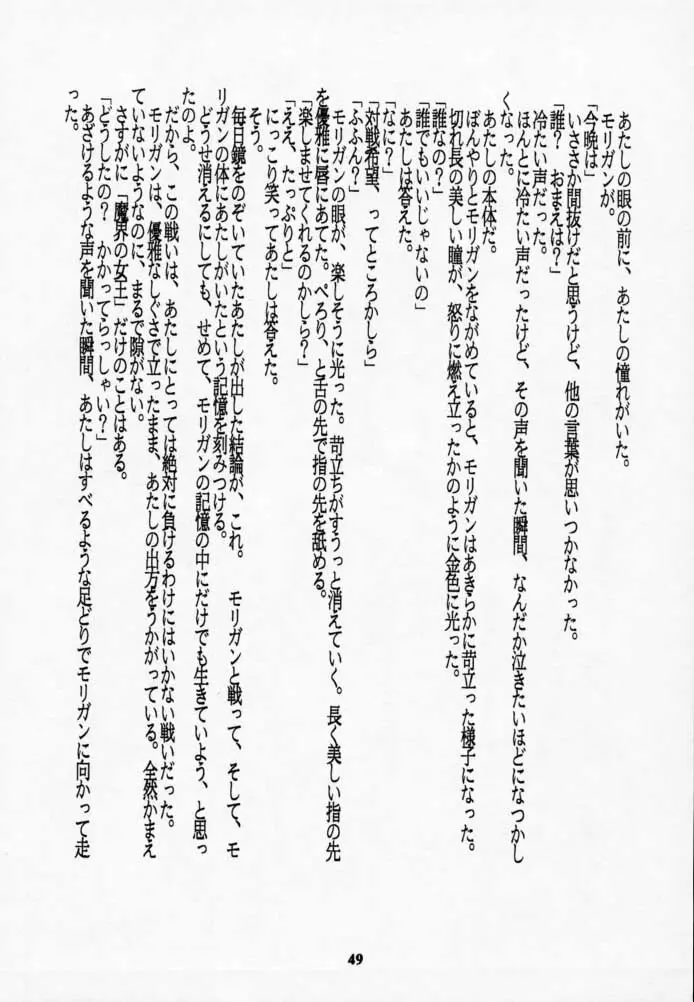 あたしの眼の前に、あたしの憧れがいた。
モリガンが。
「今晩は」
いささか間抜けだと思うけど、他の言葉が思いつかなかった。
「誰? おまえは?」
冷たい声だった。
ほんとに冷たい声だったけど、その声を聞いた瞬間、なんだか泣きたいほどになつかし
くなった。
あたしの本体だ。
ぼんやりとモリガンをながめていると、モリガンはあきらかに苛立った様子になった。
切れ長の美しい瞳が、怒りに燃え立ったかのように金色に光った。
「誰なの?」
「誰でもいいじゃないの」
あたしは答えた。
「なに?」
「対戦希望、ってところかしら」
「ふふん?」
モリガンの眼が、楽しそうに光った。苛立ちがすうっと消えていく。長く美しい指の先
を優雅に唇にあてた。ぺろり、と舌の先で指の先を舐める。
「楽しませてくれるのかしら?」
「ええ、たっぷりと」
にっこり笑ってあたしは答えた。
そう。
毎日鏡をのぞいていたあたしが出した結論が、これ。 モリガンと戦って、そして、モ
リガンの体にあたしがいたという記憶を刻みつける。
どうせ消えるにしても、せめて、モリガンの記憶の中にだけでも生きていよう、と思っ
たのよ。
だから、この戦いは、あたしにとっては絶対に負けるわけにはいかない戦いだった。
モリガンは、優雅なしぐさで立ったまま、あたしの出方をうかがっている。全然かまえ
ていないようなのに、まるで隙がない。
さすがに「魔界の女王」だけのことはある。
「どうしたの? かかってらっしゃい?」
あざけるような声を聞いた瞬間、あたしはすべるような足どりでモリガンに向かって走
った。
49